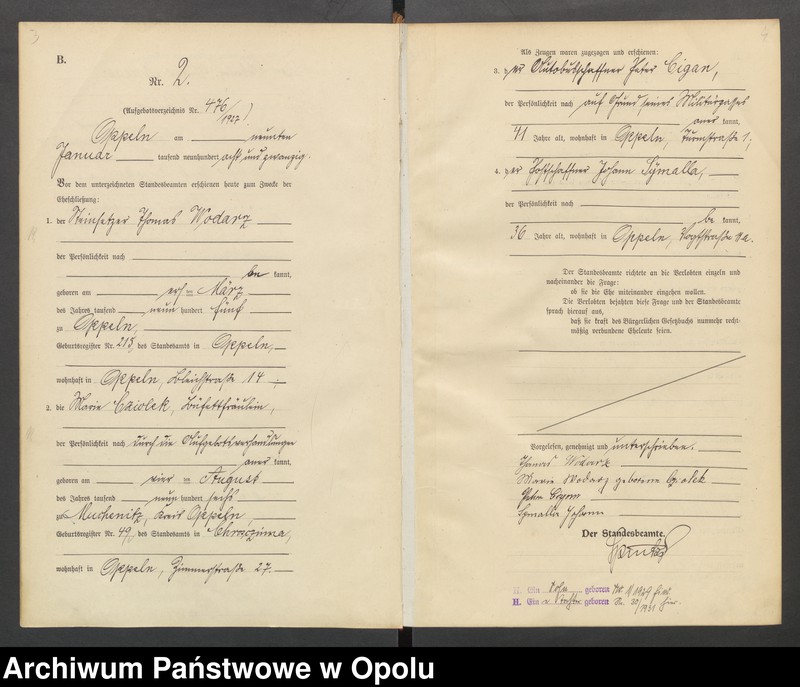 B.
Nr. 2.
(Aufgebotsverzeichnis Nr. 476/1927)
Oppeln am neunten
Januar tausend neunhundert acht und zwanzig.
Vor dem unterzeichneten Standesbeamten erschienen heute zum Zwecke der
Eheschließung:
1. der Steinsetzer Thomas Wodarz
der Persönlichkeit nach
be kannt,
geboren am im März
des Jahres tausend neun hundert fünf
zu Oppeln,
Geburtsregister Nr. 213, des Standesamts in Oppeln,
wohnhaft in Oppeln, Bleichstraße 14,
2. die Marie Cziolek, Büfettfräulein,
der Persönlichkeit nach durch die Aufgebotsverhandlungen
aner kannt,
geboren am vier im August
des Jahres tausend neun hundert sechs
zu Muchenitz, Kreis Oppeln,
Geburtsregister Nr. 49, des Standesamts in Chrosczinna,
wohnhaft in Oppeln, Zimmerstraße 27.
Als Zeugen waren zugezogen und erschienen:
3. der Autobusschaffner Peter Cigan,
der Persönlichkeit nach auf Grund seines Militärpasses
aner kannt,
41 Jahre alt, wohnhaft in Oppeln, Turmstraße 1,
4. der Postschaffner Johann Symalla,
der Persönlichkeit nach
be kannt,
36 Jahre alt, wohnhaft in Oppeln, Vogtstraße 11a.
Der Standesbeamte richtete an die Verlobten einzeln und
nacheinander die Frage:
ob sie die Ehe miteinander eingehen wollen.
Die Verlobten bejahten diese Frage und der Standesbeamte
sprach hierauf aus,
daß sie kraft des Bürgerlichen Gesetzbuchs nunmehr recht-
mäßig verbundene Eheleute seien.
Vorgelesen, genehmigt und unterschrieben.
Thomas Wodarz
Marie Wodarz geborene Cziolek
Peter Cygan
Symalla Johann
Der Standesbeamte.
H. Ein Sohn geboren Nr. 1/1929 hier.
H. Eine Tochter geboren Nr. 30/1931 hier.
Archiwum Państwowe w Opolu